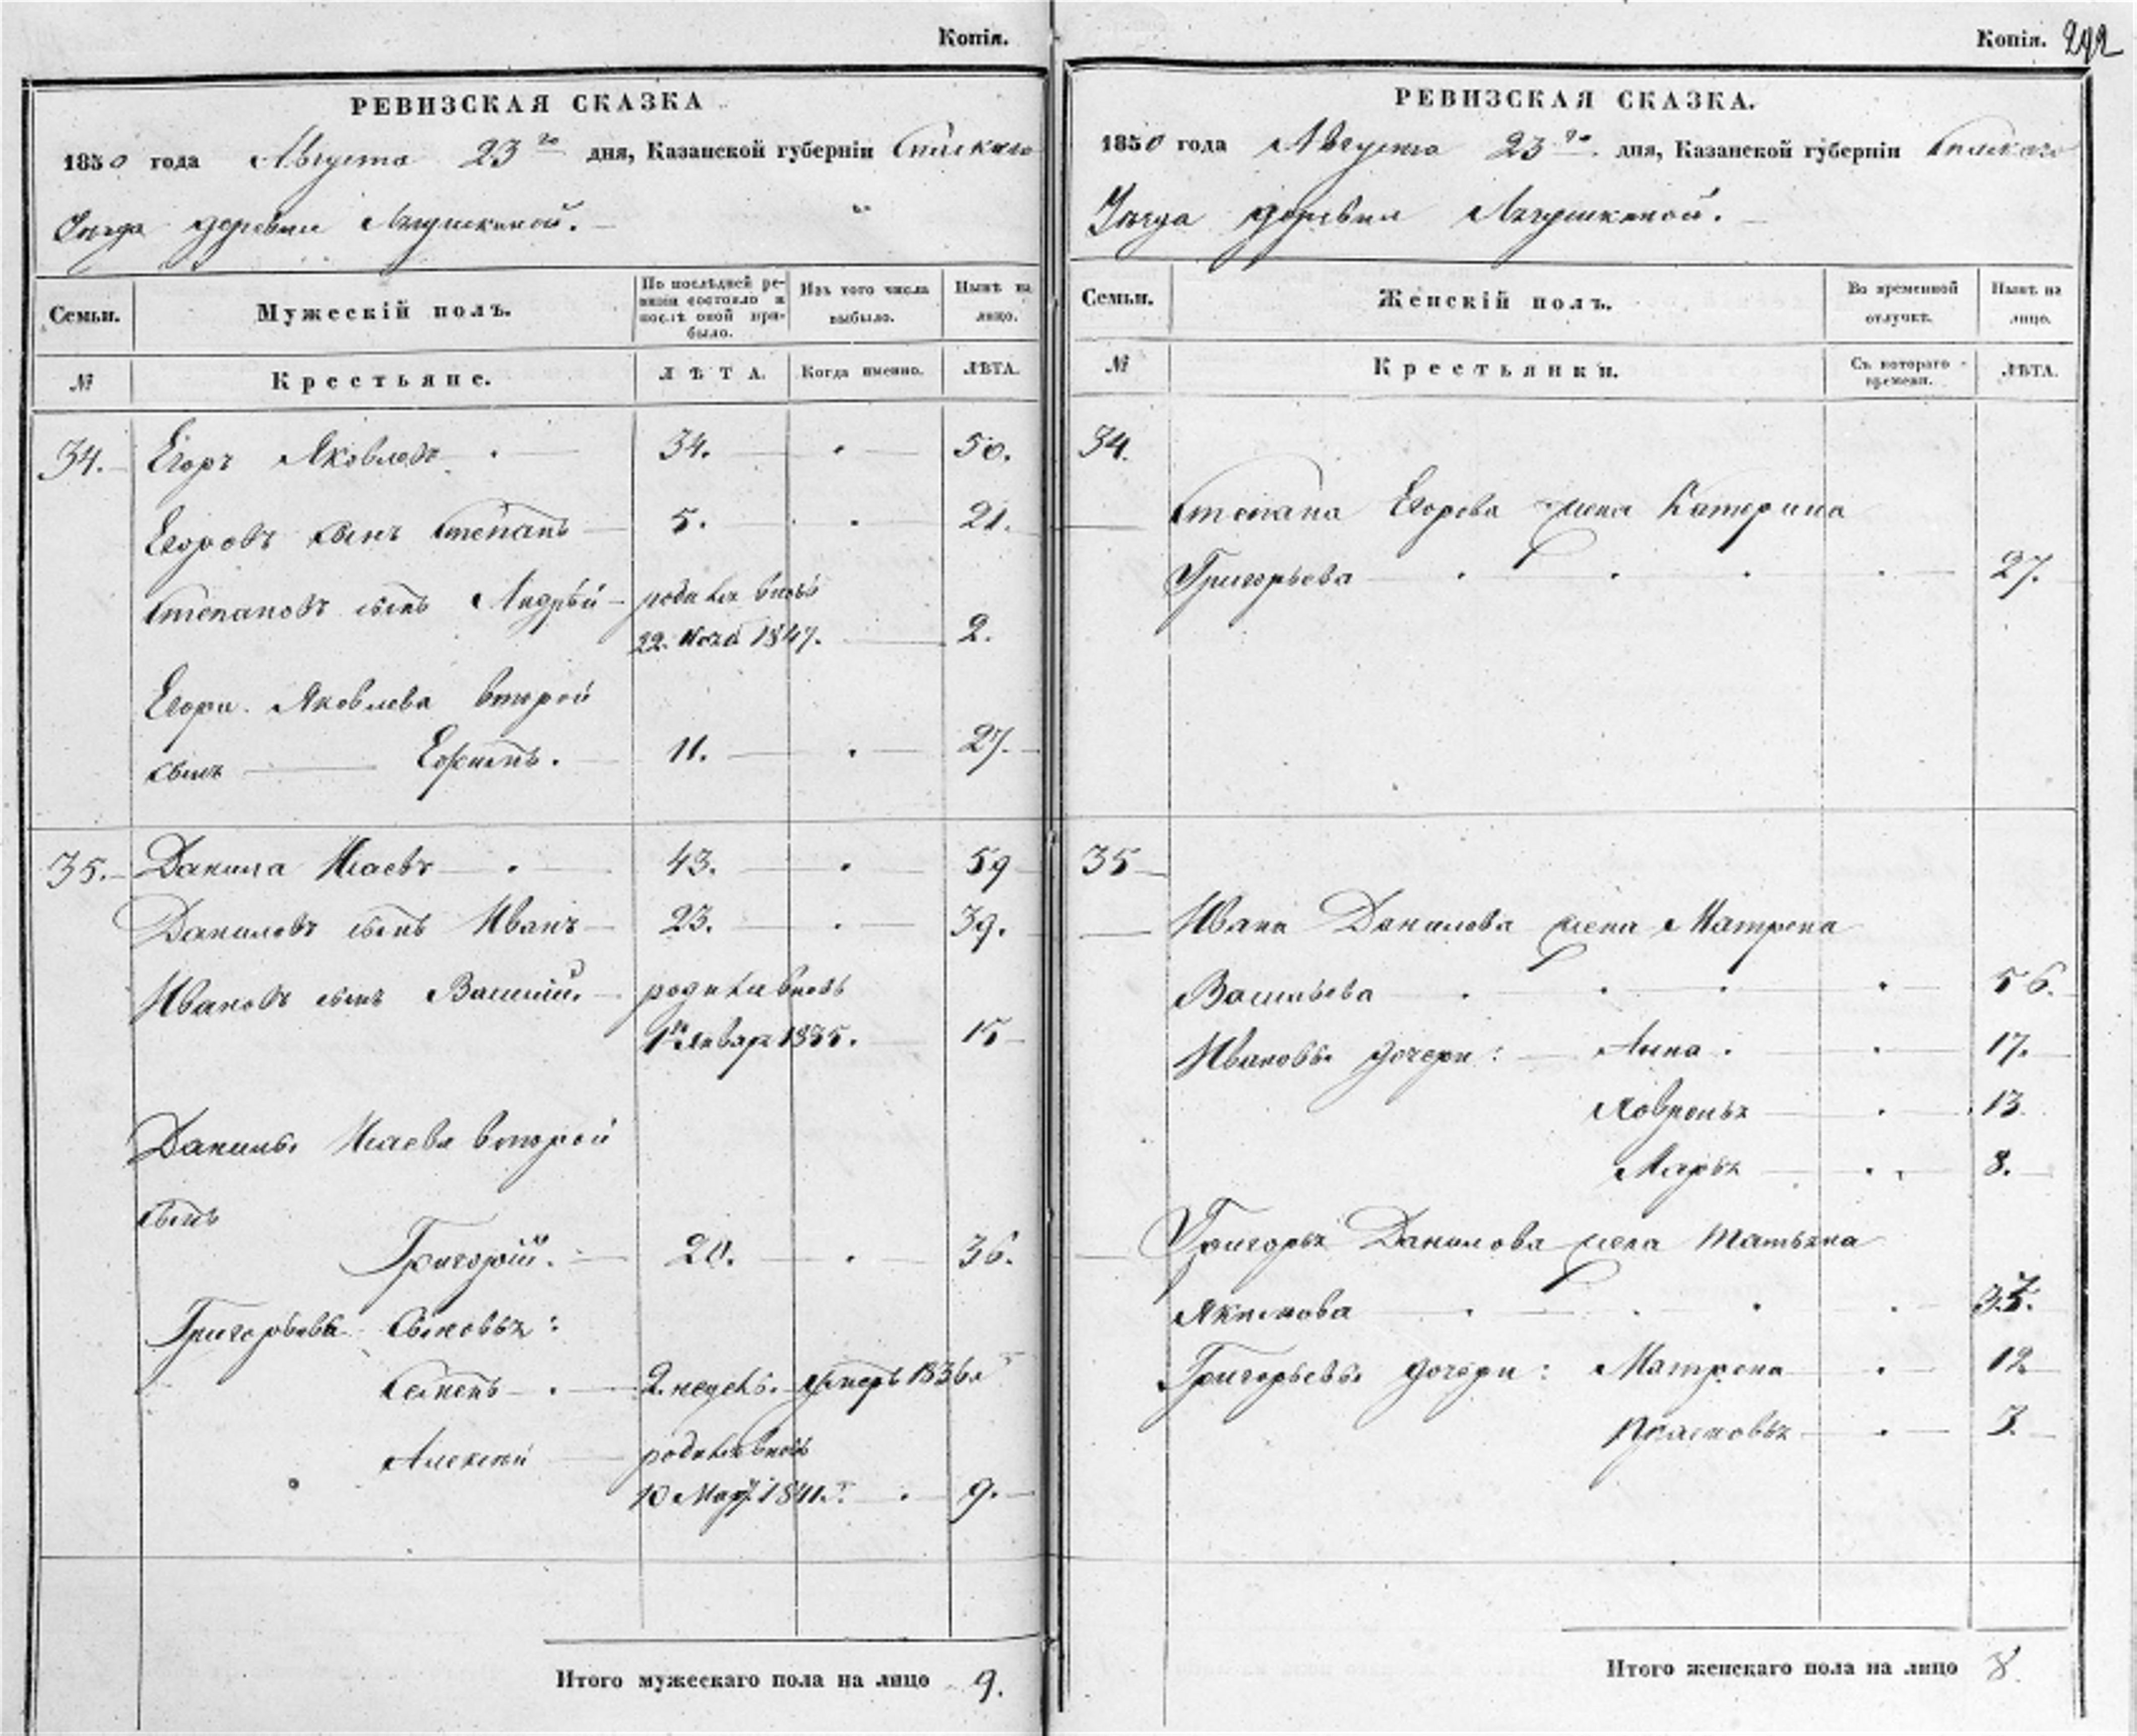 Копія.
РЕВИЗСКАЯ СКАЗКА
1850 года Августа 23го дня, Казанской губерніи Спаскаго
Уѣзда деревни Лягушкиной.
Семьи. Мужескій полъ. По послѣдней ревизіи состояло и послѣ оной прибыло. Изъ того числа выбыло. Нынѣ на лицо.
№ Крестьяне. ЛѢТА. Когда именно. ЛѢТА.
34. Егоръ Яковлевъ 34. 50.
Егоровъ сынъ Степанъ 5. 21.
Степановъ сынъ Андрей родился вновь
22. 1847. 2.
Егора Яковлева второй
сынъ Ефимъ. 11. 27.
35. Данила Исаевъ 43. 59
Даниловъ сынъ Иванъ 23. 39.
Ивановъ сынъ Василій. родился вновь
1го Января 1835. 15
Данилы Исаева второй
сынъ
Григорій. 20. 36.
Григорьевы Сыновья:
Семенъ 2. недель. умеръ 1836.
Алексей родился вновь
10 Мар. 1841. 9.
Итого мужескаго пола на лицо 9.
Копія. 292
РЕВИЗСКАЯ СКАЗКА.
1850 года Августа 23го дня, Казанской губерніи Спаскаго
Уѣзда деревни Лягушкиной.
Семьи. Женскій полъ. Во временной отлучкѣ. Нынѣ на лицо.
№ Крестьянки. Съ котораго времени. ЛѢТА.
34.
Степана Егорова жена Катерина
Григорьева 27.
35
Ивана Данилова жена Матрена
Васильева 56.
Ивановы дочери: Анна. 17.
13.
Марья 8.
Григорья Данилова жена Татьяна
Якимова 35.
Григорьевы дочери: Матрена 12
Прасковья 3.
Итого женскаго пола на лицо 8.